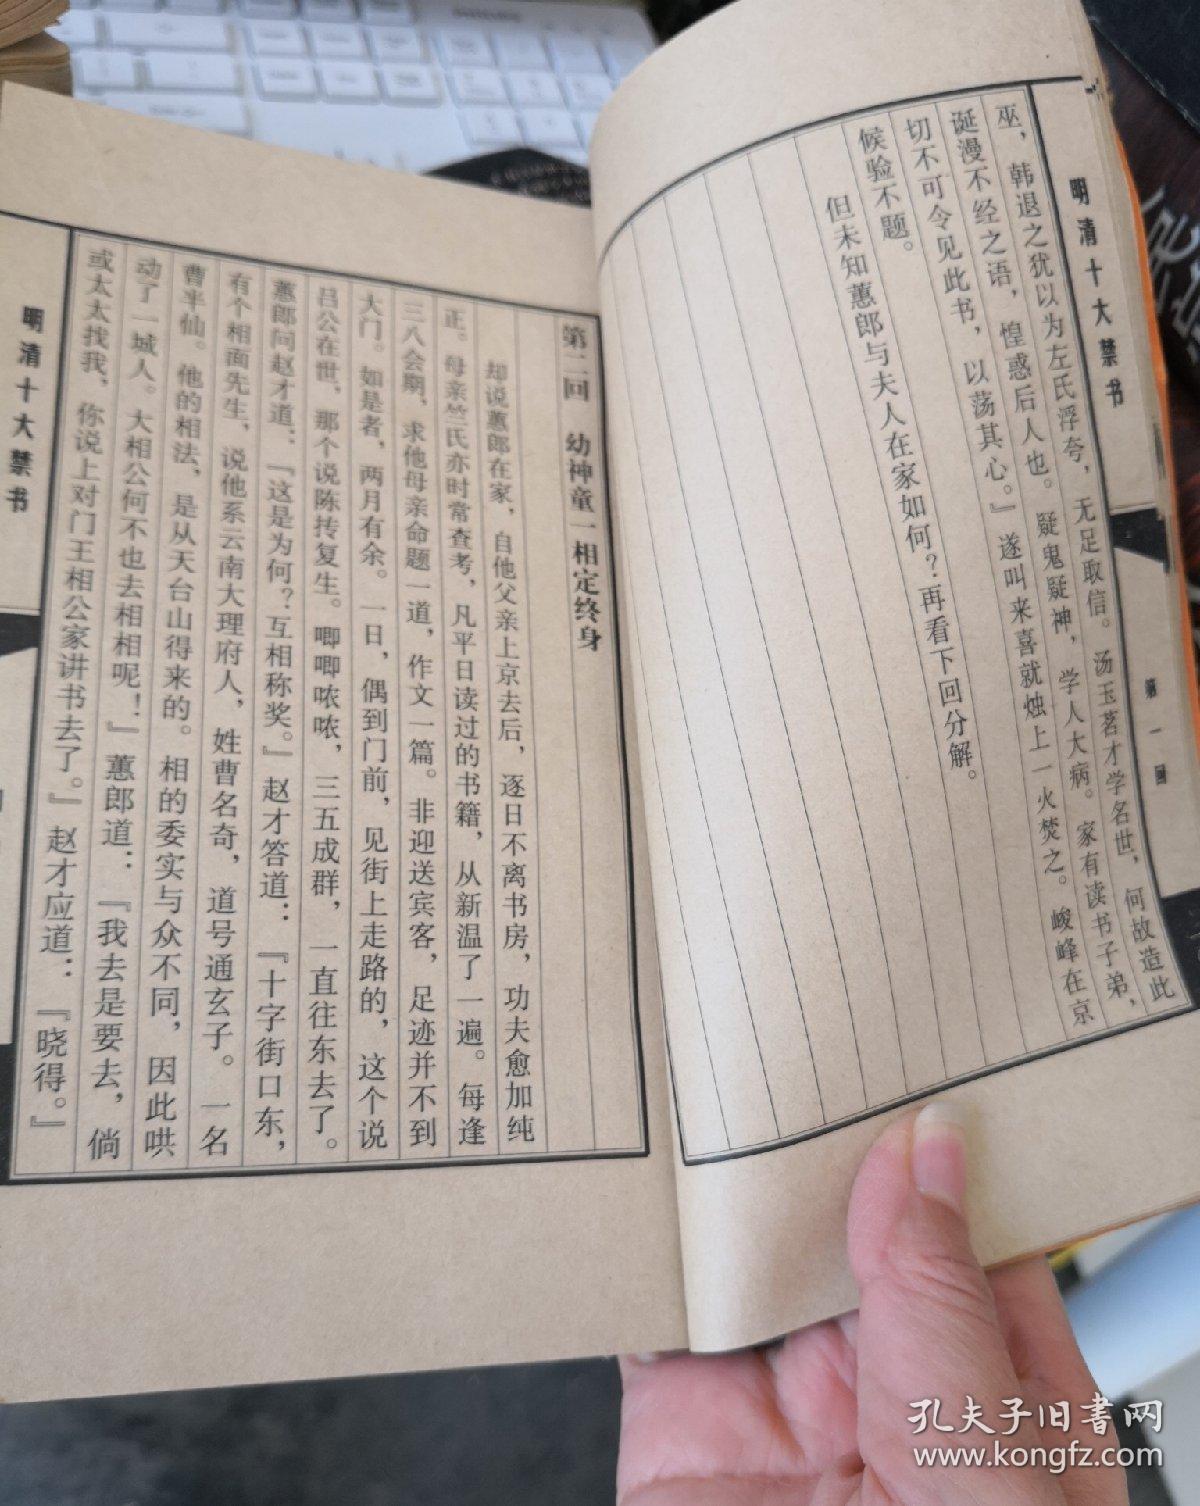 明清十大禁书
第一回
巫，韩退之犹以为左氏浮夸，无足取信。汤玉茗才学名世，何故造此
诞漫不经之语，惶惑后人也。疑鬼疑神，学人大病。家有读书子弟，
切不可令见此书，以荡其心。』遂叫来喜就烛上一火焚之。峻峰在京
候验不题。
但未知蕙郎与夫人在家如何？再看下回分解。
第二回 幼神童一相定终身
却说蕙郎在家，自他父亲上京去后，逐日不离书房，功夫愈加纯
正。母亲竺氏亦时常查考，凡平日读过的书籍，从新温了一遍。每逢
三八会期，求他母亲命题一道，作文一篇。非迎送宾客，足迹并不到
大门。如是者，两月有余。一日，偶到门前，见街上走路的，这个说
吕公在世，那个说陈抟复生。唧唧哝哝，三五成群，一直往东去了。
蕙郎问赵才道：『这是为何？互相称奖。』赵才答道：『十字街口东，
有个相面先生，说他系云南大理府人，姓曹名奇，道号通玄子。一名
曹半仙。他的相法，是从天台山得来的。相的委实与众不同，因此哄
动了一城人。大相公何不也去相相呢！』蕙郎道：『我去是要去，倘
或太太找我，你说上对门王相公家讲书去了。』赵才应道：『晓得。』
明清十大禁书
孔夫子旧书网
www.kongfz.com